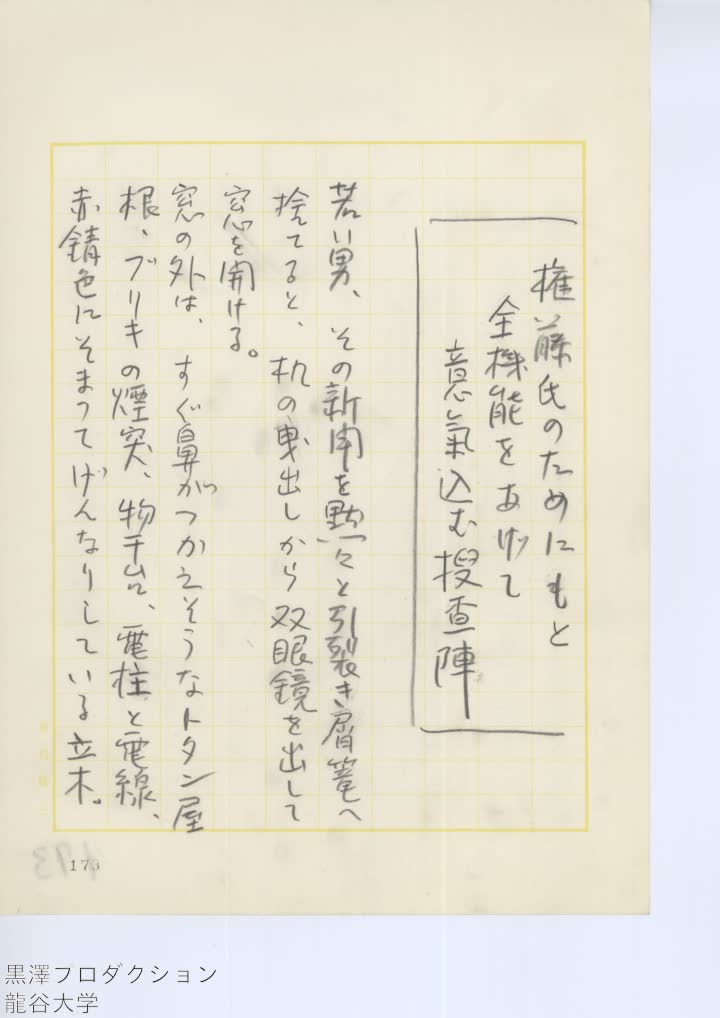 権藤氏のためにもと
全機能をあげて
意氣込む捜査陣
若い男、その新聞を黙々と引裂き屑篭へ
捨てると、机の曳出しから双眼鏡を出して
窓を開ける。
窓の外は、すぐ鼻がつかえそうなトタン屋
根、ブリキの煙突、物干台、電柱と電線、
赤錆色にそまってげんなりしている立木。
173
黒澤プロダクション
龍谷大学